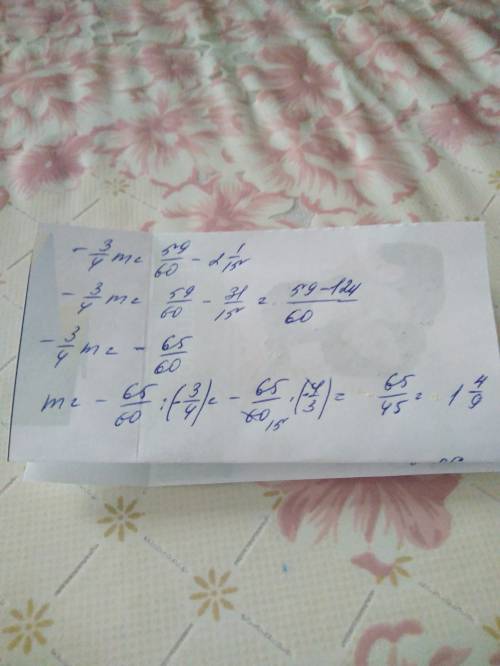 - 3/4 m = 59/60 - 2 1/15
- 3/4 m = 59/60 - 31/15 = 59-124/60
- 3/4 m = - 65/60
m = - 65/60 : (- 3/4) = - 65/60 15 · (- 4/3) = 65/45 = 1 4/9